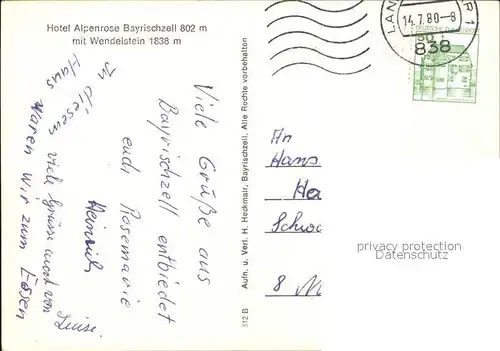 Hotel Alpenrose Bayrischzell 802 m
mit Wendelstein 1838 m
Viele Grüße aus
Bayrischzell entbietet
euch Rosemarie
Heinrich
In diesem
Haus
waren wir zum Essen
viele Grüsse auch von
Luise.
Aufn. u. Verl. H. Heckmair, Bayrischzell. Alle Rechte vorbehalten
812 B
LAN
R 1
14.7.80-8
838
DEUTSCHE BUNDESPOST
50
An
Hans
8
privacy protection
Datenschutz